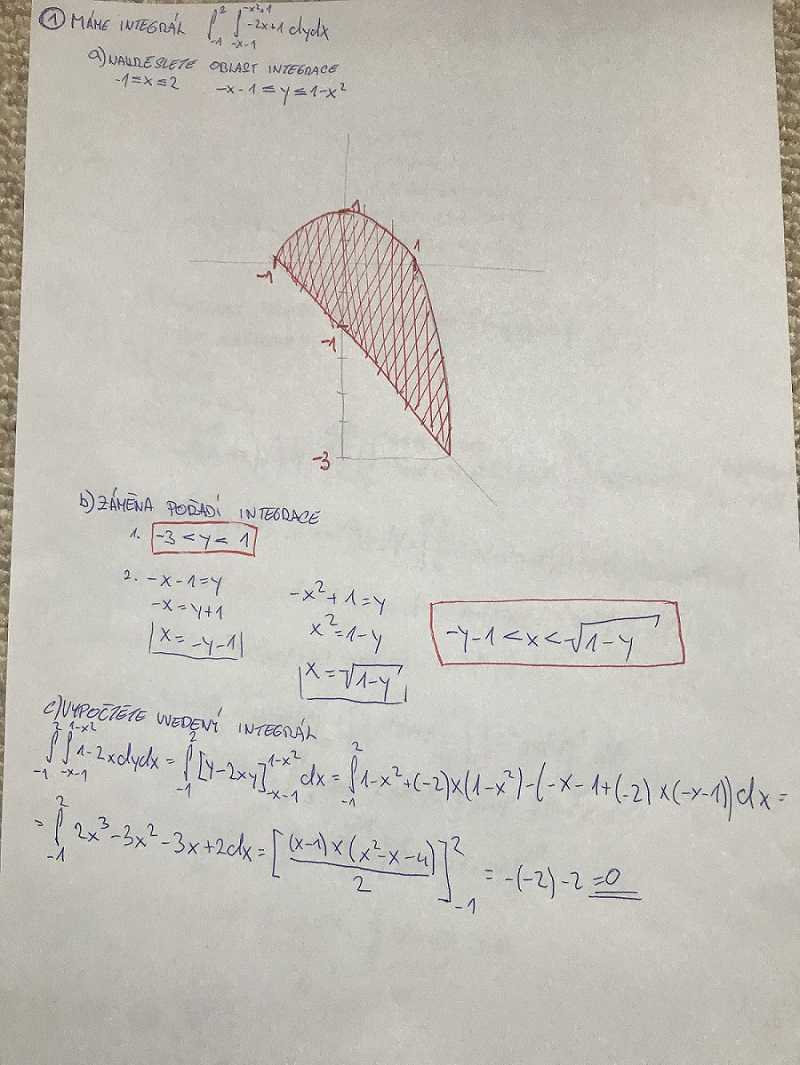 1 MÁME INTEGRÁL ∫₋₁² ∫₋ₓ₋₁^(-x²+1) -2x+1 dydx
a) NAKRESLETE OBLAST INTEGRACE
-1≤x≤2 -x-1≤y≤1-x²
1
-1 1
-1
-3
b) ZÁMĚNA POŘADÍ INTEGRACE
1. -3<y<1
2. -x-1=y
-x=y+1
x=-y-1
-x²+1=y
x²=1-y
x=√1-y
-y-1<x<√1-y
c) VYPOČTĚTE UVEDENÝ INTEGRÁL
∫₋₁² ∫₋ₓ₋₁^(1-x²) 1-2x dydx = ∫₋₁² [y-2xy]₋ₓ₋₁^(1-x²) dx = ∫₋₁² 1-x²+(-2)x(1-x²)-(-x-1+(-2)x(-x-1))dx =
= ∫₋₁² 2x³-3x²-3x+2dx = [(x-1)x(x²-x-4)/2]₋₁² = -(-2)-2=0